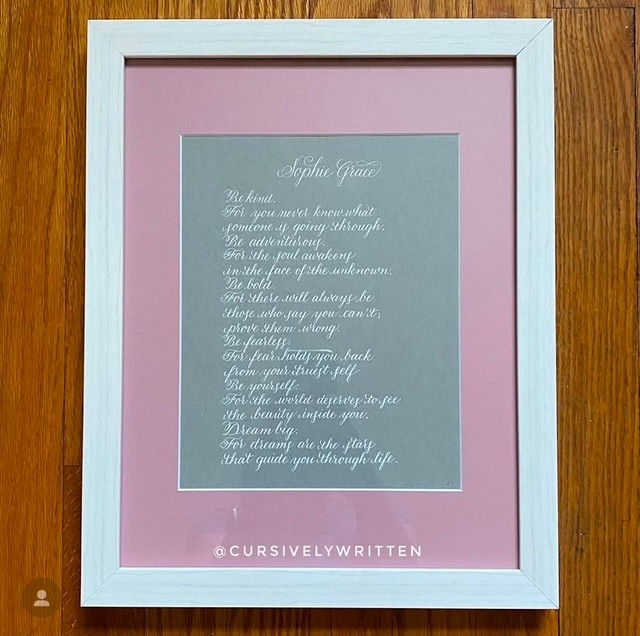 Sophie Grace
Be kind.
For you never know what
someone is going through.
Be adventurous.
For the soul awakens
in the face of the unknown.
Be bold.
For there will always be
those who say you can't;
prove them wrong.
Be fearless.
For fear holds you back
from your truest self
Be yourself.
For the world deserves to see
the beauty inside you.
Dream big.
For dreams are the stars
that guide you through life.
@CURSIVELYWRITTEN